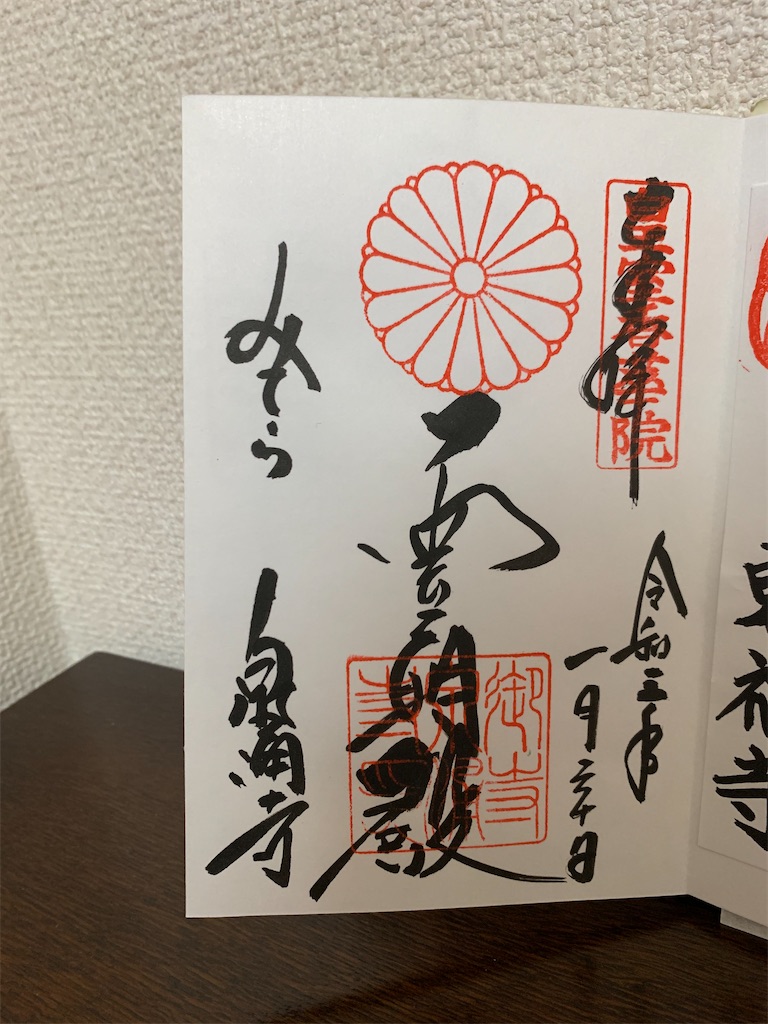 奉拝
皇室香華院
令和三年
一月二十日
霊明殿
御寺
みてら
泉涌寺
東福寺